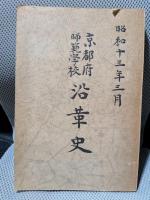 昭和十三年三月
京都府
師範学校
沿革史